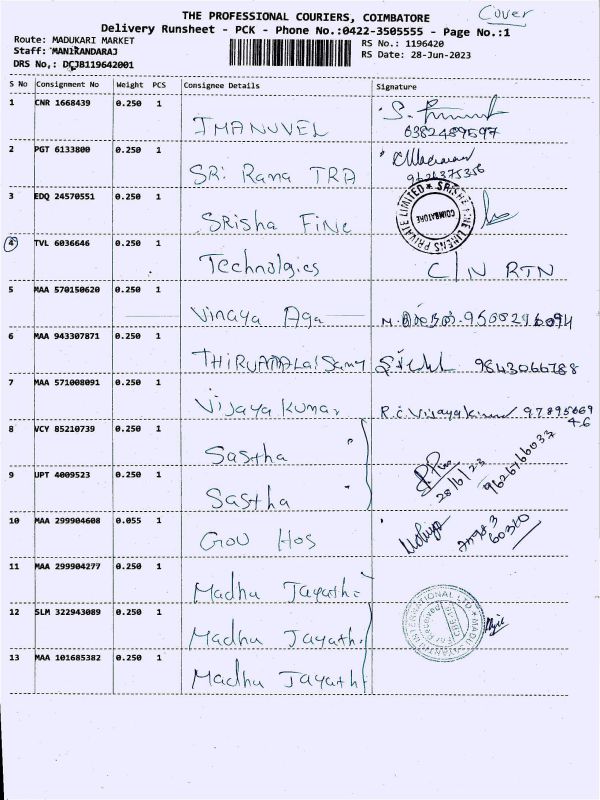 THE PROFESSIONAL COURIERS, COIMBATORE
Cover
Delivery Runsheet - PCK - Phone No.:0422-3505555 - Page No.:1
Route: MADUKARI MARKET
RS No.: 1196420
Staff: MANIKANDARAJ
RS Date: 28-Jun-2023
DRS No,: DCJB119642001
S No Consignment No Weight PCS Consignee Details Signature
1 CNR 1668439 0.250 1 IMANUVEL
6382489597
2 PGT 6133800 0.250 1 SRi Rama TRA
9626375356
3 EDQ 24570551 0.250 1 SRisha FiNe
COIMBATORE
4 TVL 6036646 0.250 1 Technolgies C/N RTN
5 MAA 570150620 0.250 1 Vinaya Aga 9500296094
6 MAA 943307871 0.250 1 THIRUMALAISamy 9843066788
7 MAA 571008091 0.250 1 Vijaya Kumar R.C. Vijayakumar 97895669
46
8 VCY 85210739 0.250 1 Sastha
28/6/23 9626766033
9 UPT 4009523 0.250 1 Sastha
10 MAA 299904608 0.055 1 Gov Hos
60310
11 MAA 299904277 0.250 1 Madhu Jayathi
12 SLM 322943089 0.250 1 Madhu Jayathi
13 MAA 101685382 0.250 1 Madhu Jayathi